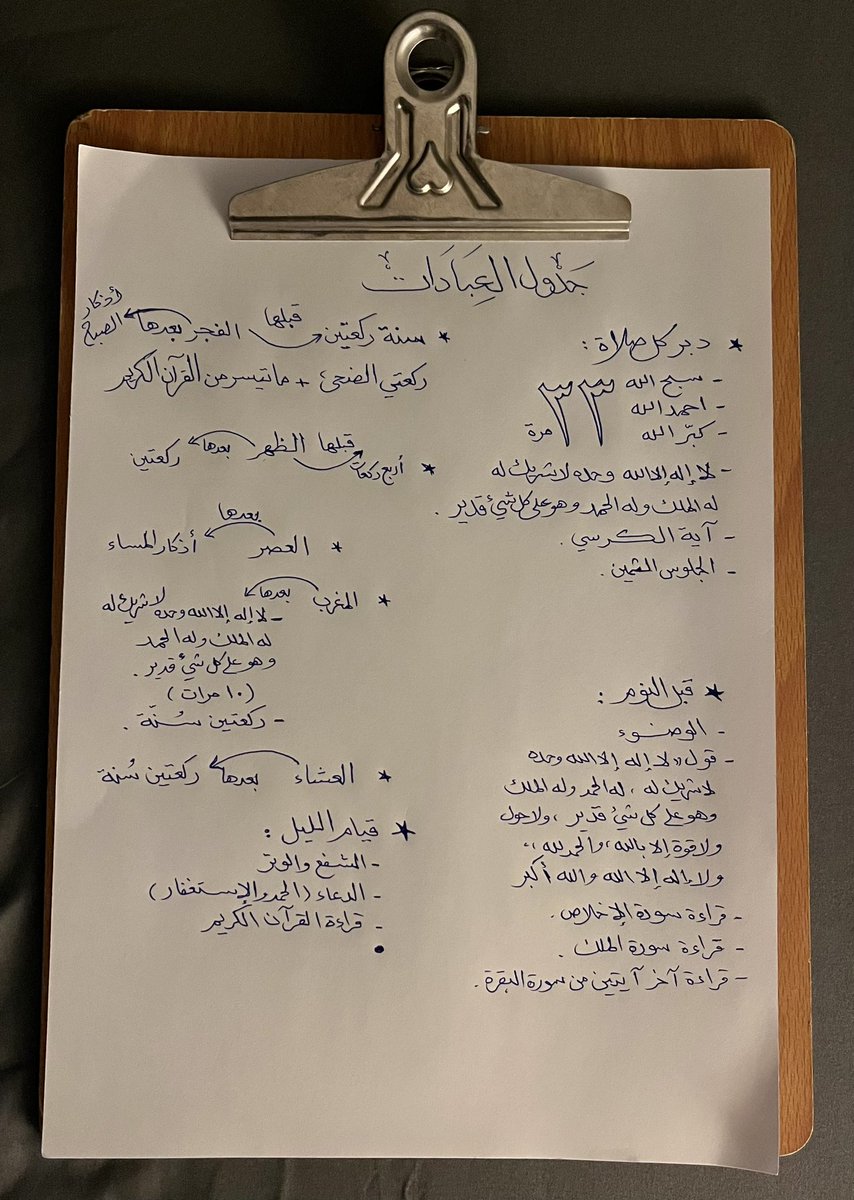 جَدْوَل العِبَادَات
★ دبر كل صلاة :
- سبح الله
- احمد الله
- كبّر الله
٣٣ مرة
- لا إله إلا الله وحده لا شريك له
له الملك وله الحمد وهو على كل شيئ قدير .
- آية الكرسي .
- الجلوس الثمين .
★ قبل النوم :
- الوضوء
- قول " لا إله إلا الله وحده
لا شريك له ، له الحمد وله الملك
وهو على كل شيئ قدير ، ولا حول
ولا قوة إلا بالله ، والحمدلله ،،
ولا إله إلا الله والله أكبر
- قراءة سورة الإخلاص .
- قراءة سورة الملك .
- قراءة آخر آيتين من سورة البقرة .
★ سنة ركعتين قبلها الفجر بعدها أذكار الصبح
ركعتي الضحى + ما تيسر من القرآن الكريم
★ أربع ركعات قبلها الظهر بعدها ركعتين
★ العصر بعدها أذكار المساء
★ المغرب بعدها
- لا إله إلا الله وحده لا شريك له
له الملك وله الحمد
وهو على كل شيئ قدير .
(١٠ مرات)
- ركعتين سُنّة .
★ العشاء بعدها ركعتين سُنة
★ قيام الليل :
- الشفع والوتر
- الدعاء (الحمد والإستغفار)
- قراءة القرآن الكريم